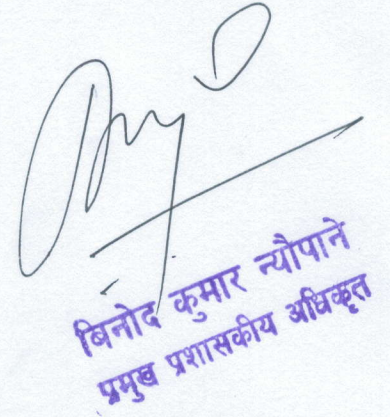 बिनोद कुमार न्यौपाने
प्रमुख प्रशासकीय अधिकृत